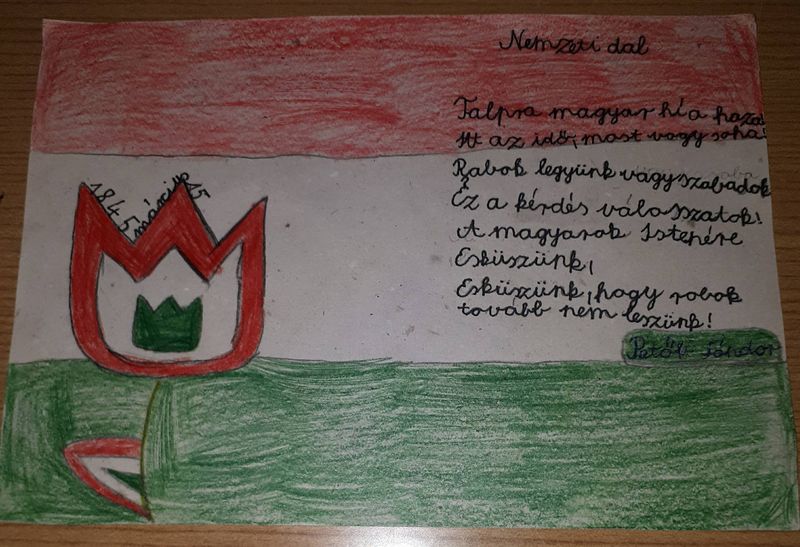 Nemzeti dal
Talpra magyar hí a haza
Itt az idő, most vagy soha!
Rabok legyünk vagy szabadok
Éz a kérdés válasszatok!
A magyarok Istenére
Esküszünk,
Esküszünk, hogy rabok
tovább nem leszünk!
Petőfi Sándor
1845 március 15